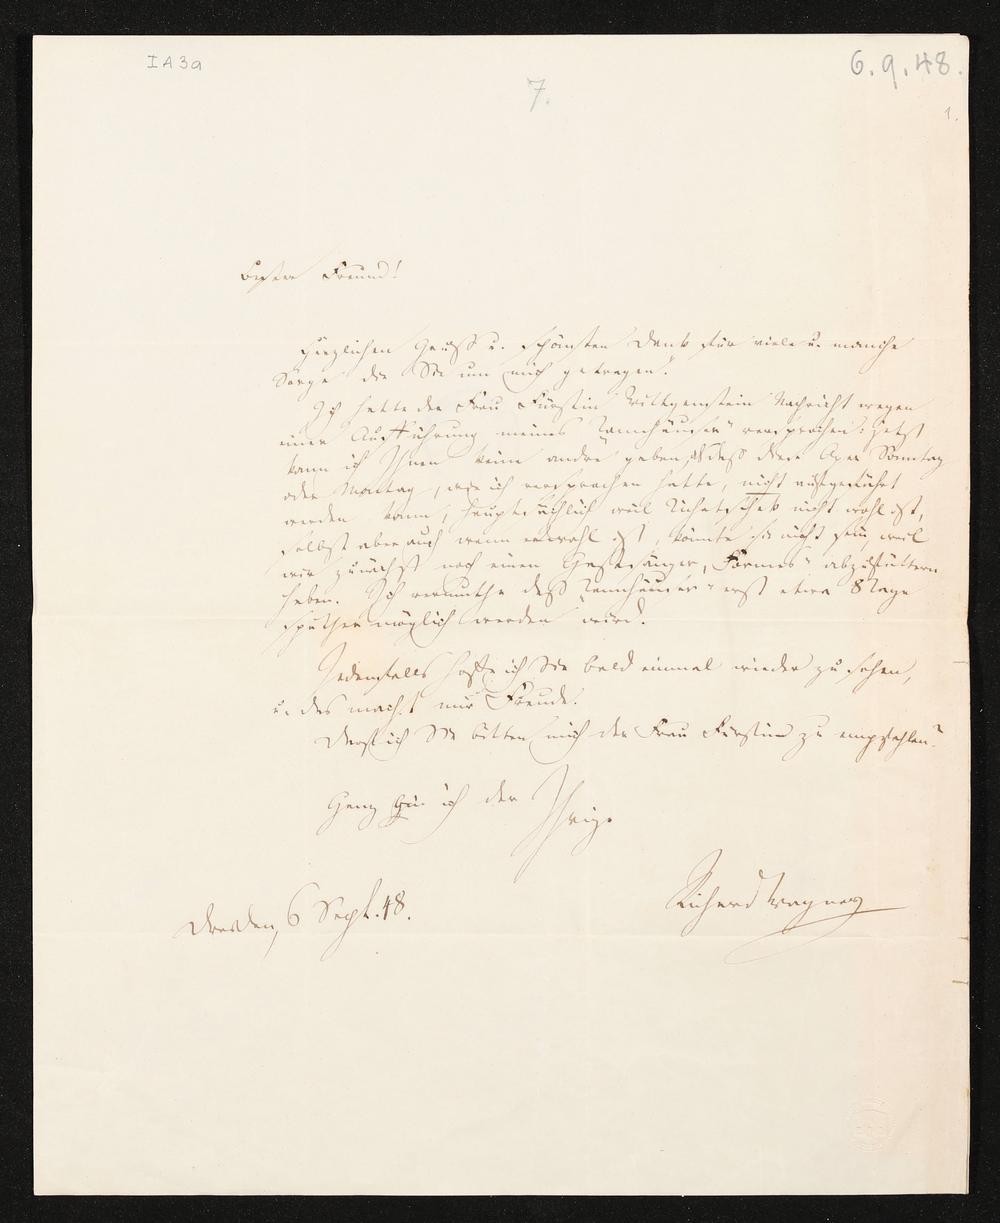 I A 3a
6. 9. 48.
7.
1.
Bester Freund!
Herzlichen Gruß u. schönsten Dank für viele u. manche
Sorge die Sie um mich getragen!
Ich hatte der Frau Fürstin Wittgenstein Nachricht wegen
einer Aufführung meines „Tannhäuser" versprochen: jetzt
kann ich Ihnen keine andre geben, als daß diese Oper Sonntag
oder Montag, wie ich versprochen hatte, nicht aufgeführt
werden kann, hauptsächlich weil Tichatschek nicht wohl ist,
selbst aber auch wenn er wohl ist, könnte sie nicht sein, weil
wir zunächst noch einen Gastsänger, „Formes" abzufüttern
haben. Ich vermuthe daß „Tannhäuser" erst etwa 8 Tage
später möglich werden wird.
Jedenfalls hoffe ich Sie bald einmal wieder zu sehen,
u. das macht mir Freude.
Darf ich Sie bitten mich der Frau Fürstin zu empfehlen?
Ganz bin ich der Ihrige
Richard Wagner
Dresden, 6 Sept. 48.